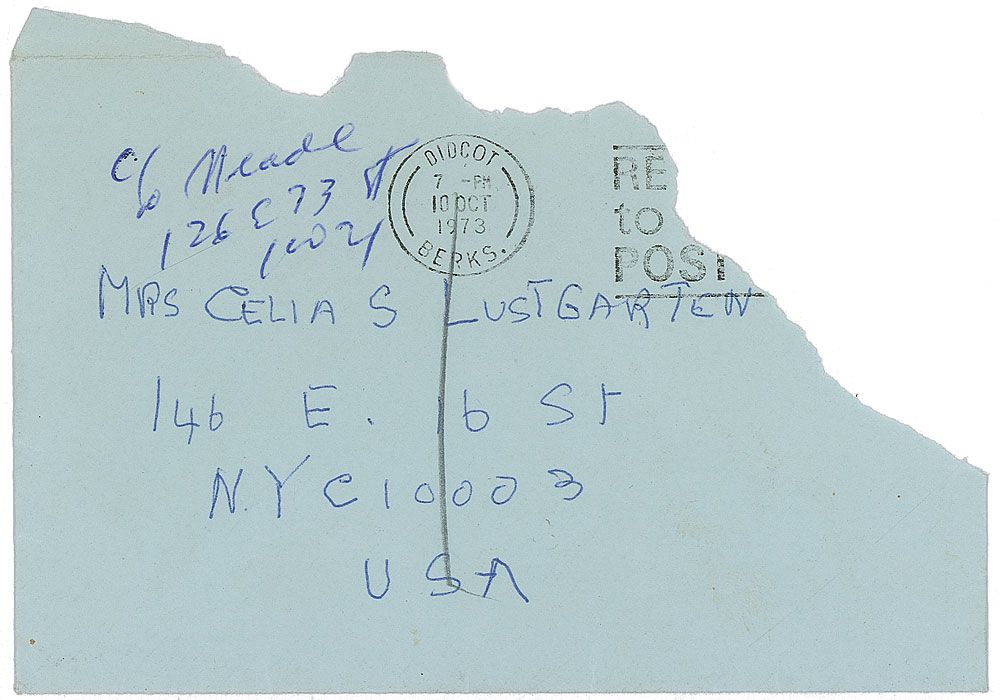 c/o Meade
126 E 73 St
10021
DIDCOT
7 -PM
10 OCT
1973
BERKS.
RE
to
POST
MRS CELIA S LUSTGARTEN
146 E. 16 St
N.Y C 10003
USA